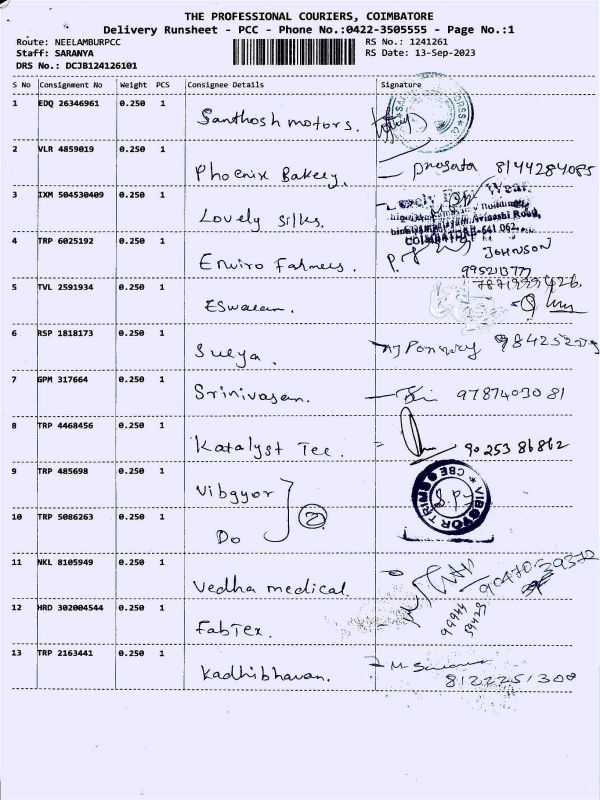 THE PROFESSIONAL COURIERS, COIMBATORE
Delivery Runsheet - PCC - Phone No.:0422-3505555 - Page No.:1
Route: NEELAMBURPCC RS No.: 1241261
Staff: SARANYA RS Date: 13-Sep-2023
DRS No.: DCJB124126101
S No Consignment No Weight PCS Consignee Details Signature
1 EDQ 26346961 0.250 1 Santhosh motors.
2 VLR 4859019 0.250 1 Phoenix Bakery. prasata 8144284085
3 IXM 504530409 0.250 1 Lovely silks.
Wear
Avinashi Road,
COIMBATORE-641 062.
4 TRP 6025192 0.250 1 Enviro Farmers. JOHNSON
995213777
5 TVL 2591934 0.250 1 Eswaran.
6 RSP 1818173 0.250 1 Surya.
7 GPM 317664 0.250 1 Srinivasan. 9787403081
8 TRP 4468456 0.250 1 Katalyst Tee. 90253 86862
9 TRP 485698 0.250 1 Vibgyor
VIBGYOR TRI CBE
10 TRP 5086263 0.250 1 Do 2
11 NKL 8105949 0.250 1 Vedha medical. 90470 39372
12 HRD 302004544 0.250 1 FabTex. 99944 59423
13 TRP 2163441 0.250 1 Kadhibhavan. 8122251308